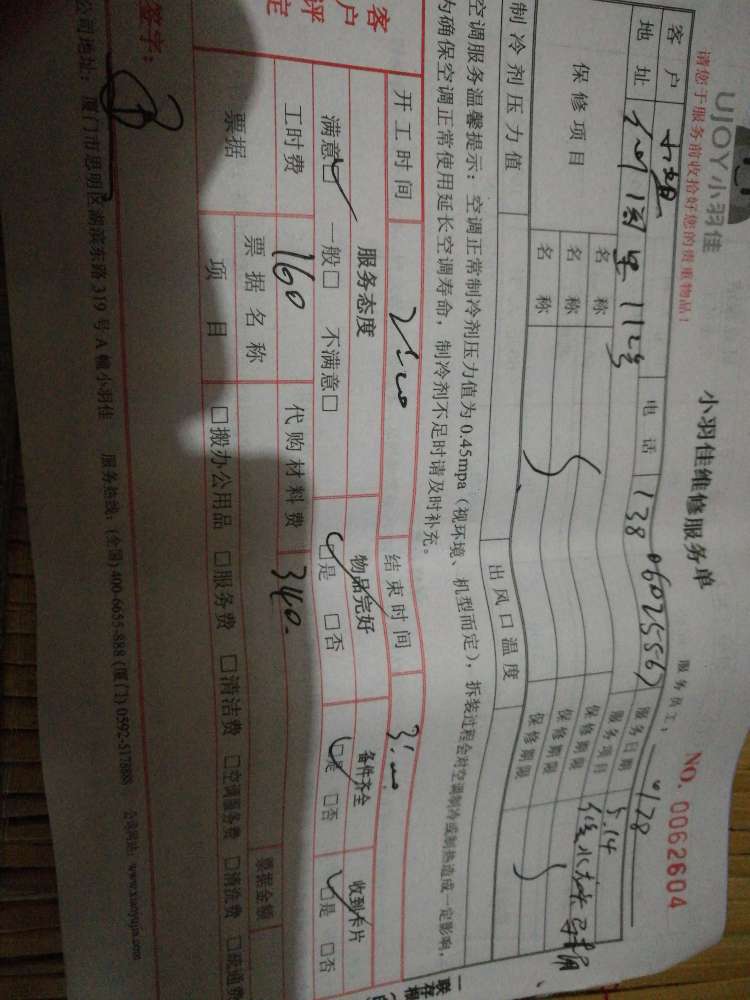 UJOY小羽佳
小羽佳维修服务单
NO. 0062604
请您于服务前收拾好您的贵重物品!
服务员工:
客户
电话 13806025567
服务日期 5.14
地址 112号
服务项目
保修项目
名称
保修期限
名称
保修期限
名称
保修期限
制冷剂压力值
出风口温度
空调服务温馨提示:空调正常制冷剂压力值为0.45mpa(视环境、机型而定),拆装过程会对空调制冷或制热造成一定影响,
为确保空调正常使用延长空调寿命,制冷剂不足时请及时补充。
开工时间 2:00
结束时间 3:00
客户评定
服务态度
物品完好
备件齐全
收到卡片
满意□ 一般□ 不满意□
□是 □否
□是 □否
□是 □否
工时费 160
代购材料费 340.
票据
票据名称
票据金额
项目
□搬办公用品 □服务费 □清洁费 □空调服务费 □清洗费 □疏通费
签字:
公司地址:厦门市思明区湖滨东路319号A幢小羽佳 服务热线:(全国)400-6655-888 (厦门) 0592-5178888 公司网址:www.xiaoyujia.com